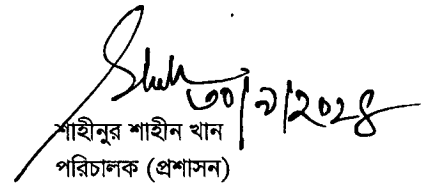 ৩০/৯/২০২৪
শাহীনুর শাহীন খান
পরিচালক (প্রশাসন)